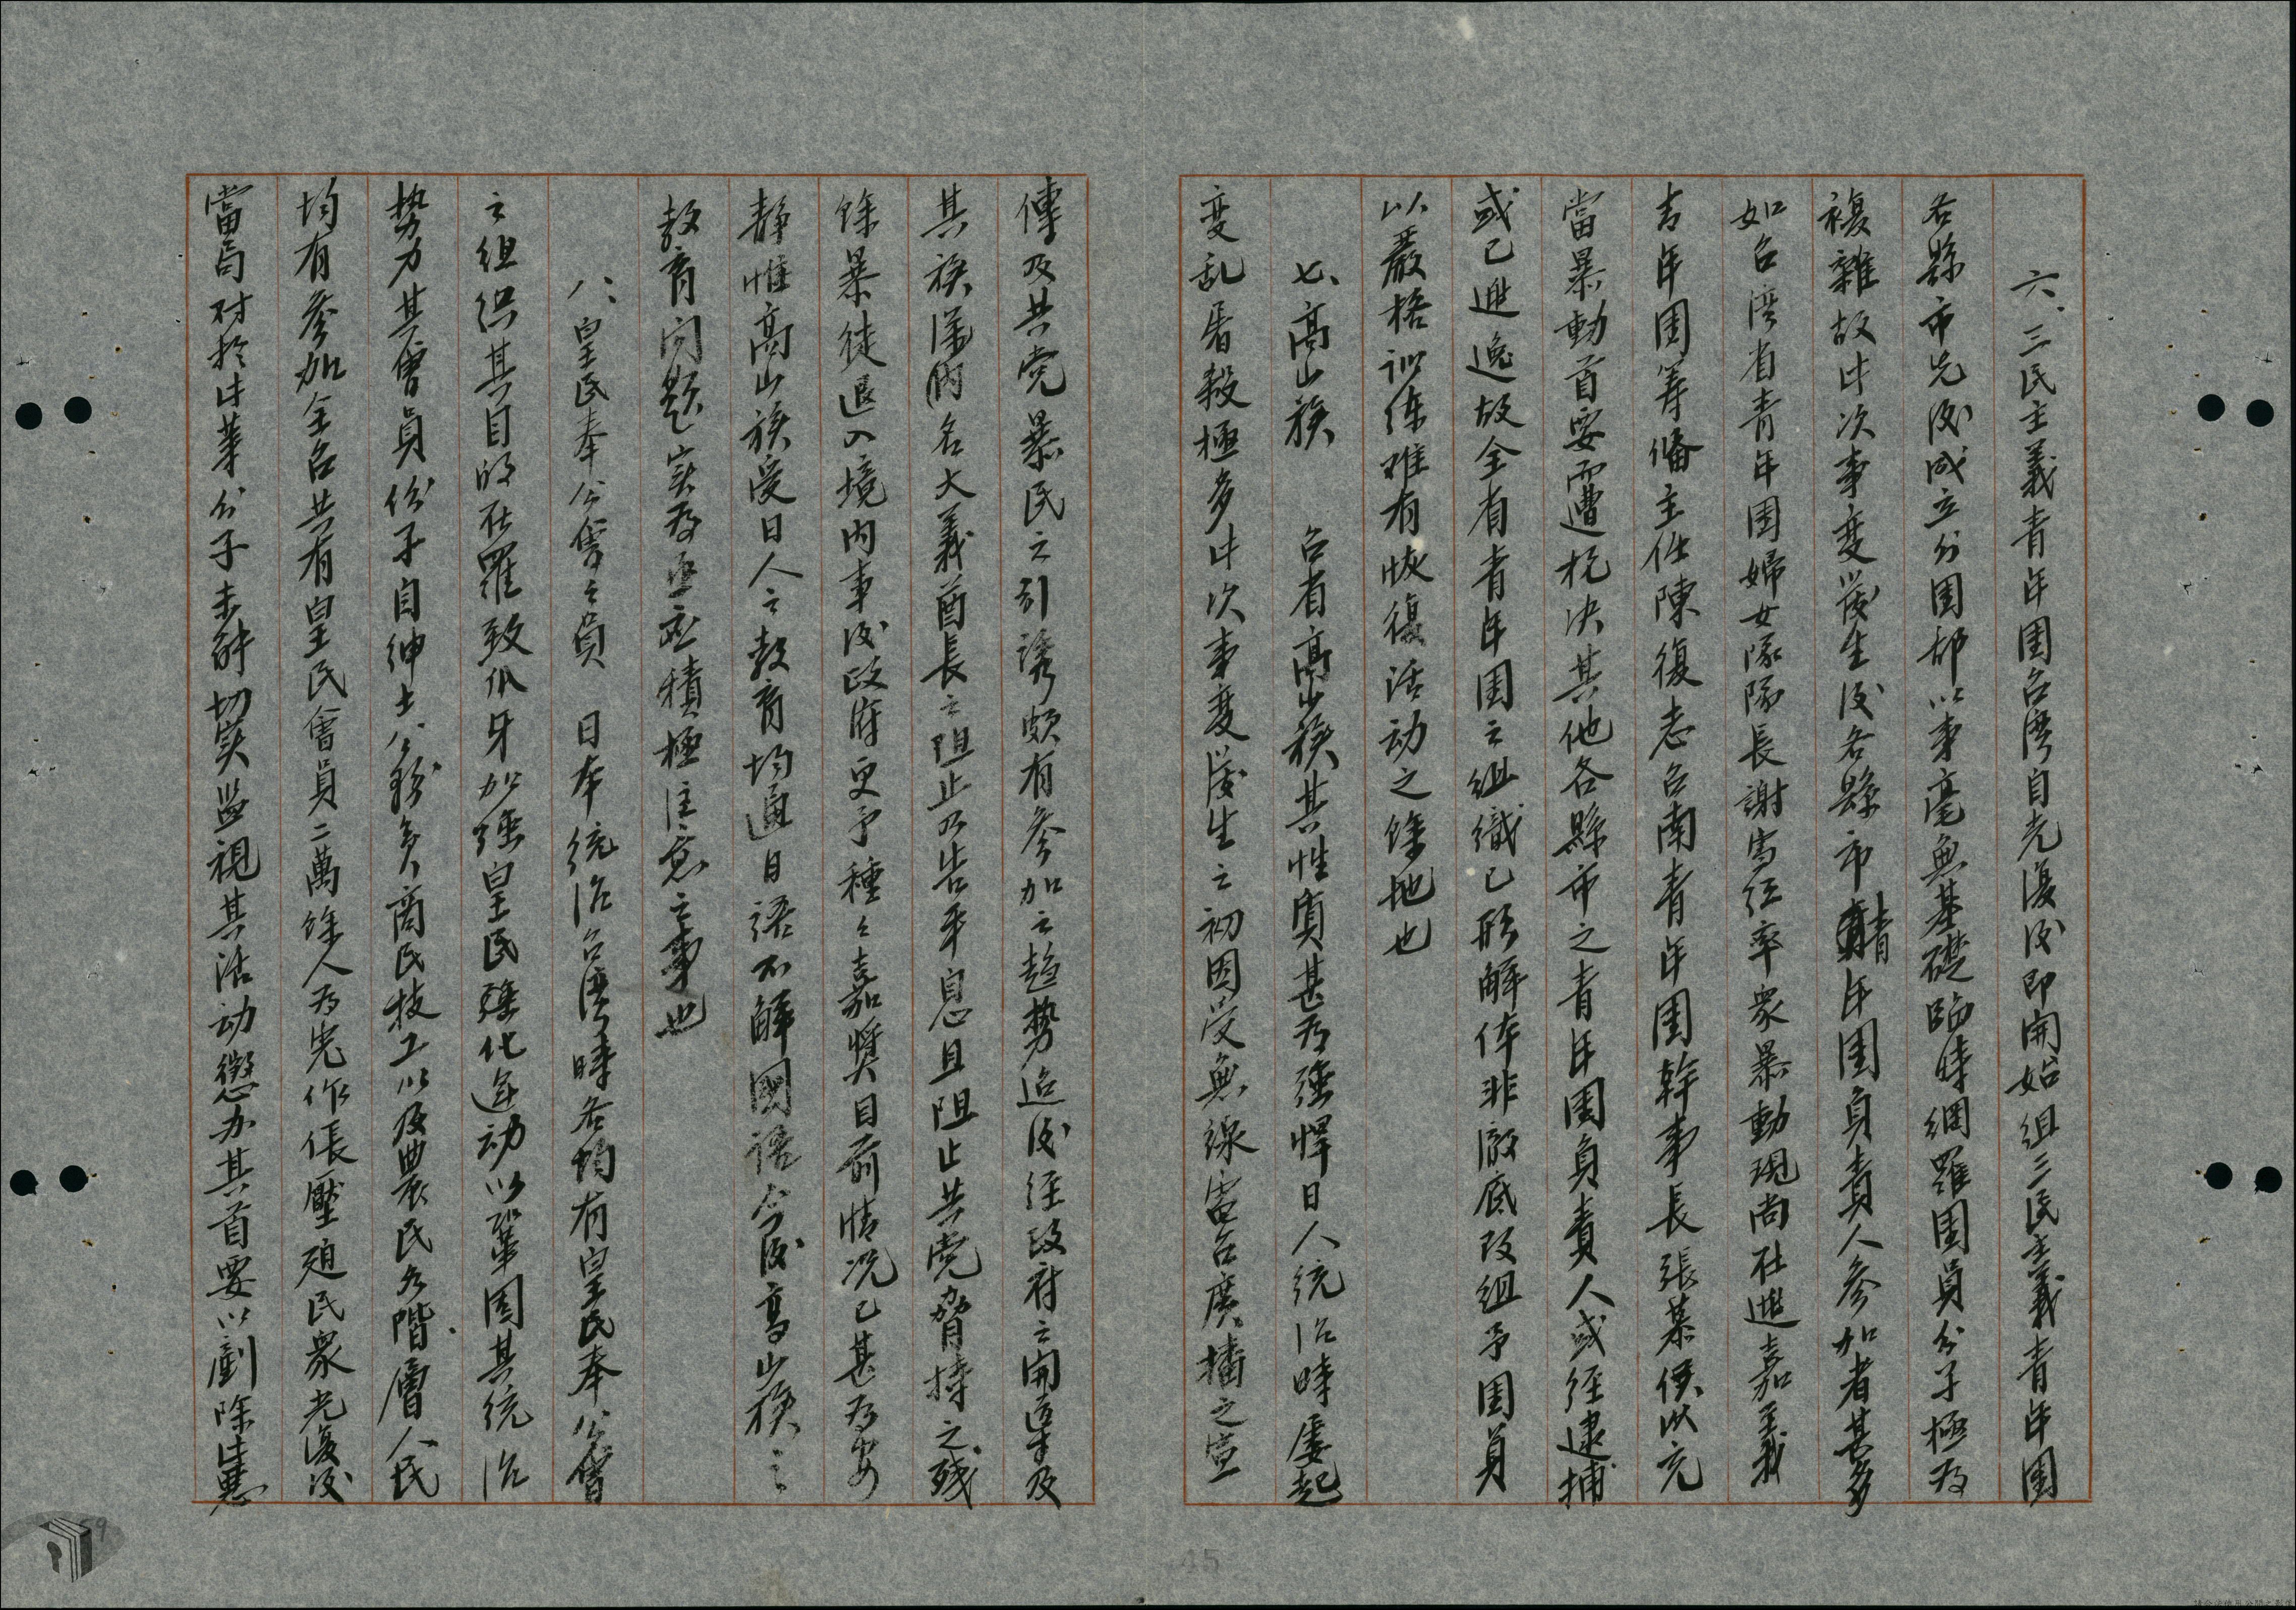 六、三民主義青年團台灣自光復后即開始組三民主義青年團
各縣市先後成立分團部以事毫無基礎臨時網羅團員分子極為
複雜故此次事變發生後各縣市青年團負責人參加者甚多
如台灣省青年團婦女隊隊長謝雪紅率衆暴動現尚在逃嘉義
青年團筹備主任陳復志台南青年團幹事長張慕侯以充
當暴動首要而遭槍决其他各縣市之青年團負責人或経逮捕
或已逃逸故全省青年團之組織已形解体非徹底改組予團員
以嚴格訓練难有恢復活动之餘地也
七、高山族　台省高山族其性質甚為强悍日人統治時屡起
变乱屠殺極多此次事變發生之初因受無線電台廣播之宣
傳及共党暴民之引誘頗有参加之趋勢迨後经政府之開導及
其族深明大義酋長之阻止乃告平息且阻止共党脅持之残
餘暴徒退入境内事後政府更予種々嘉奨目前情况已甚為安
静惟高山族受日人之教育均通日語不解國語今後高山族之
教育问题实為亟應積極注意之事也
八、皇民奉公會之員　日本統治台湾時各均有皇民奉公會
之组织其目的在羅致爪牙加强皇民强化运动以鞏固其统治
势力其會員份子自紳士、公務員商民技工以及農民各階層人民
均有参加全台共有皇民會員二萬餘人为鬼作倀壓廹民衆光復後
當局对於此輩分子未能切实监視其活动懲办其首要以剷除
59
45